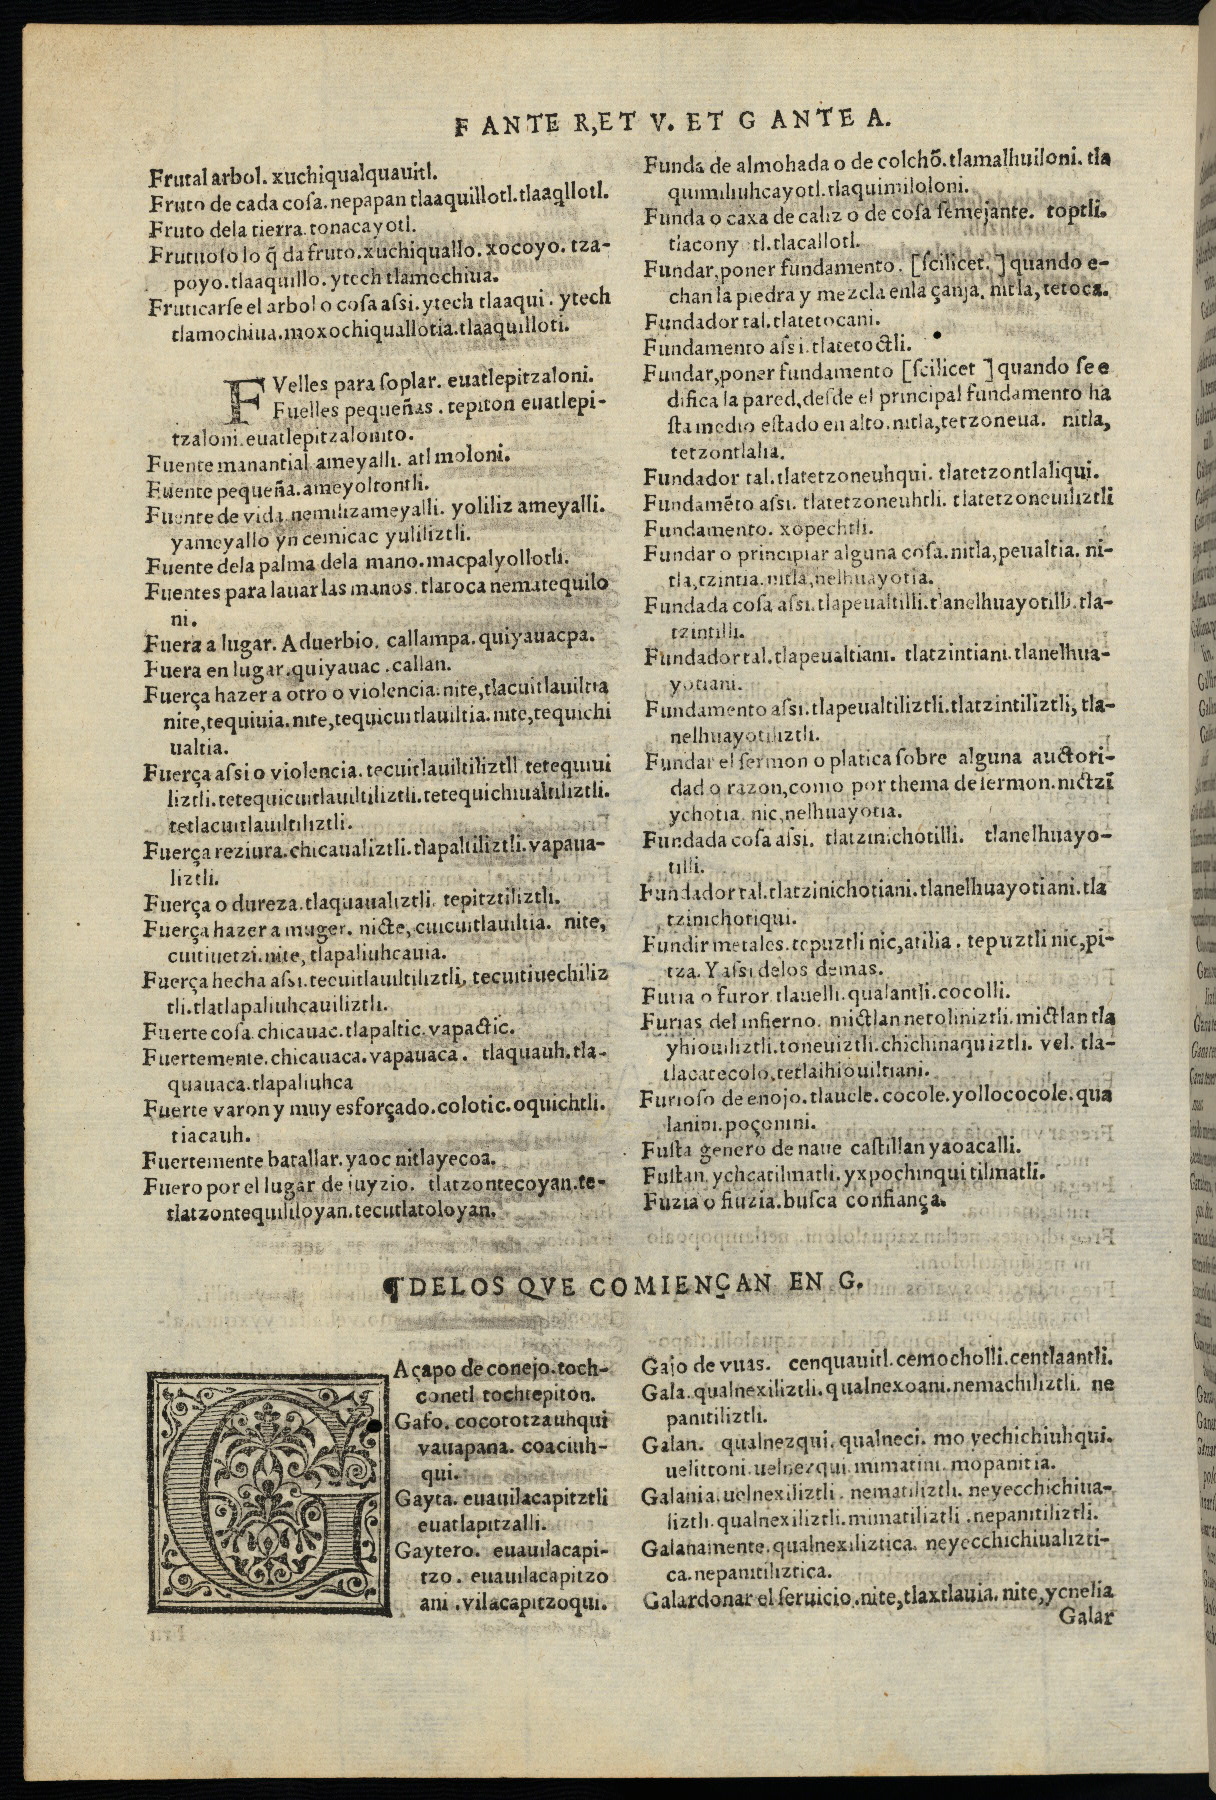 F ANTE R, ET V. ET G ANTE A.
Frutal arbol. xuchiqualquauitl.
Fruto de cada cosa. nepapan tlaaquillotl. tlaaq̃llotl.
Fruto dela tierra. tonacayotl.
Frutuoso lo q̃ da fruto. xuchiquallo. xocoyo. tza-
poyo. tlaaquillo. ytech tlamochiua.
Fruticarse el arbol o cosa assi. ytech tlaaqui. ytech
tlamochiua. moxochiquallotia. tlaaquilloti.
FVelles para soplar. euatlepitzaloni.
Fuelles pequeñas. tepiton euatlepi-
tzaloni. euatlepitzalonito.
Fuente manantial ameyalli. atl moloni.
Fuente pequeña. ameyoltontli.
Fuente de vida nemilizameyalli. yoliliz ameyalli.
yameyallo yn cemicac yuliliztli.
Fuente dela palma dela mano. macpalyollotli.
Fuentes para lauar las manos. tlatoca nematequilo
ni.
Fuera a lugar. Aduerbio. callampa. quiyauacpa.
Fuera en lugar. quiyauac. callan.
Fuerça hazer a otro o violencia. nite, tlacuitlauiltia
nite, tequiuia. nite, tequicuitlauiltia. nite, tequichi
ualtia.
Fuerça assi o violencia. tecuitlauiltiliztli. tetequiui
liztli. tetequicuitlauiltiliztli. tetequichiualtiliztli.
tetlacuitlauiltiliztli.
Fuerça reziura. chicaualiztli. tlapaltiliztli. vapaua-
liztli.
Fuerça o dureza. tlaquaualiztli. tepitztiliztli.
Fuerça hazer a muger. nicte, cuicuitlauiltia. nite,
cuitiuetzi. nite, tlapaliuhcauia.
Fuerça hecha assi. tecuitlauiltiliztli, tecuitiuechiliz
tli. tlatlapaliuhcauiliztli.
Fuerte cosa. chicauac. tlapaltic. vapactic.
Fuertemente. chicauaca. vapauaca. tlaquauh. tla-
quauaca. tlapaliuhca
Fuerte varon y muy esforçado. colotic. oquichtli.
tiacauh.
Fuertemente batallar. yaoc nitlayecoa.
Fuero por el lugar de iuyzio. tlatzontecoyan. te-
tlatzontequililoyan. tecutlatoloyan.
Funda de almohada o de colchõ. tlamalhuiloni. tla
quimiliuhcayotl. tlaquimiloloni.
Funda o caxa de caliz o de cosa semejante. toptli.
tlacony tl. tlacallotl.
Fundar, poner fundamento. [scilicet. ] quando e-
chan la piedra y mezcla enla çanja. nitla, tetoca.
Fundador tal. tlatetocani.
Fundamento assi. tlatetoctli.
Fundar, poner fundamento [scilicet ] quando se e
difica la pared, desde el principal fundamento ha
sta medio estado en alto. nitla, tetzoneua. nitla,
tetzontlalia.
Fundador tal. tlatetzoneuhqui. tlatetzontlaliqui.
Fundamẽto assi. tlatetzoneuhtli. tlatetzoneuiliztli
Fundamento. xopechtli.
Fundar o principiar alguna cosa. nitla, peualtia. ni-
tla, tzintia. nitla, nelhuayotia.
Fundada cosa assi. tlapeualtilli. tlanelhuayotilli. tla-
tzintilli.
Fundador tal. tlapeualtiani. tlatzintiani. tlanelhua-
yotiani.
Fundamento assi. tlapeualtiliztli. tlatzintiliztli, tla-
nelhuayotiliztli.
Fundar el sermon o platica sobre alguna auctori-
dad o razon, como por thema de sermon. nictzĩ
ychotia. nic, nelhuayotia.
Fundada cosa assi. tlatzinichotilli. tlanelhuayo-
tilli.
Fundador tal. tlatzinichotiani. tlanelhuayotiani. tla
tzinichotiqui.
Fundir metales. tepuztli nic, atilia. tepuztli nic, pi-
tza. Y assi delos demas.
Furia o furor. tlauelli. qualantli. cocolli.
Furias del infierno. mictlan netoliniztli. mictlan tla
yhiouiliztli. toneuiztli. chichinaquiztli. vel. tla-
tlacatecolo, tetlaihiouiltiani.
Furioso de enojo. tlauele. cocole. yollococole. qua
lanini. poçonini.
Fusta genero de naue castillan yaoacalli.
Fustan. ychcatilmatli. yxpochinqui tilmatli.
Fuzia o fiuzia. busca confiança.
¶ DELOS QVE COMIENÇAN EN G.
GAçapo de conejo. toch-
conetl tochtepiton.
Gafo. cocototzauhqui
vauapana. coaciuh-
qui.
Gayta. euauilacapitztli
euatlapitzalli.
Gaytero. euauilacapi-
tzo. euauilacapitzo
ani. vilacapitzoqui.
Gajo de vuas. cenquauitl. cemocholli. centlaantli.
Gala. qualnexiliztli. qualnexoani. nemachiliztli. ne
panitiliztli.
Galan. qualnezqui. qualneci. mo yechichiuhqui.
uelittoni. uelnezqui. mimatini. mopanitia.
Galania. uelnexiliztli. nematiliztli. neyecchichiua-
liztli. qualnexiliztli. mimatiliztli. nepanitiliztli.
Galanamente. qualnexiliztica. neyecchichiualizti-
ca. nepanitiliztica.
Galardonar el seruicio. nite, tlaxtlauia. nite, ycnelia
Galar